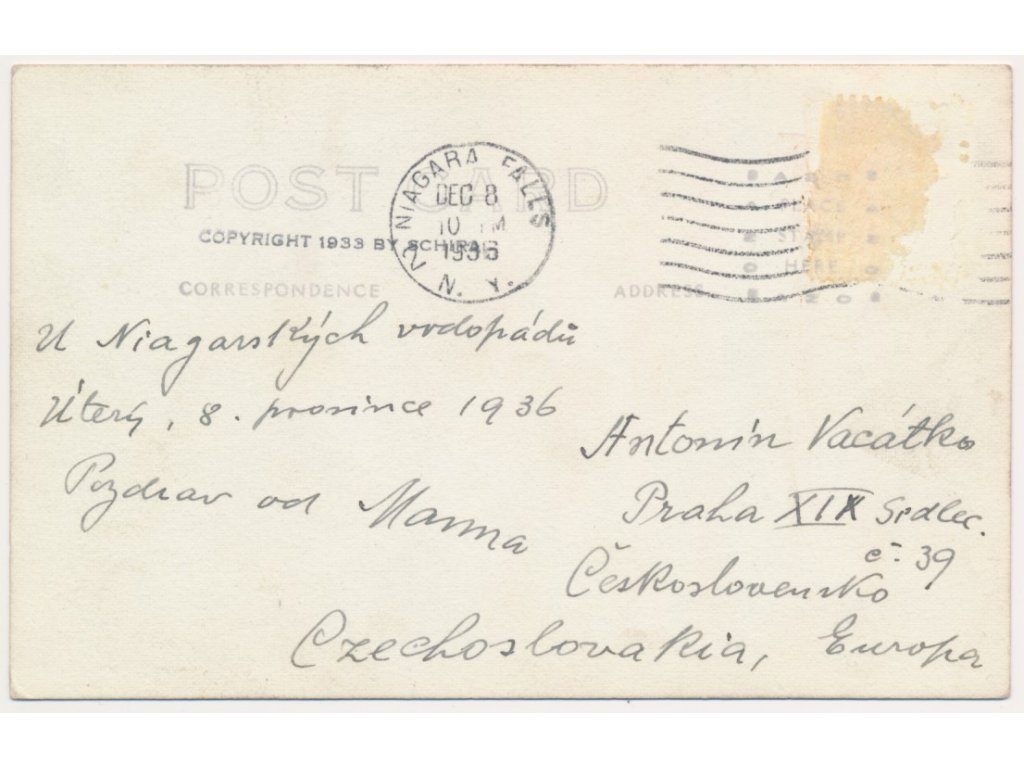 POST CARD
NIAGARA FALLS
2
DEC 8
10 M
1936
N. Y.
COPYRIGHT 1933 BY
CORRESPONDENCE
ADDRESS
PLACE
STAMP
HERE
U Niagarských vodopádů
Úterý, 8. prosince 1936
Pozdrav od
Antonín Vacátko
Praha XIX Sedlec.
č. 39
Československo
Czechoslovakia, Europa